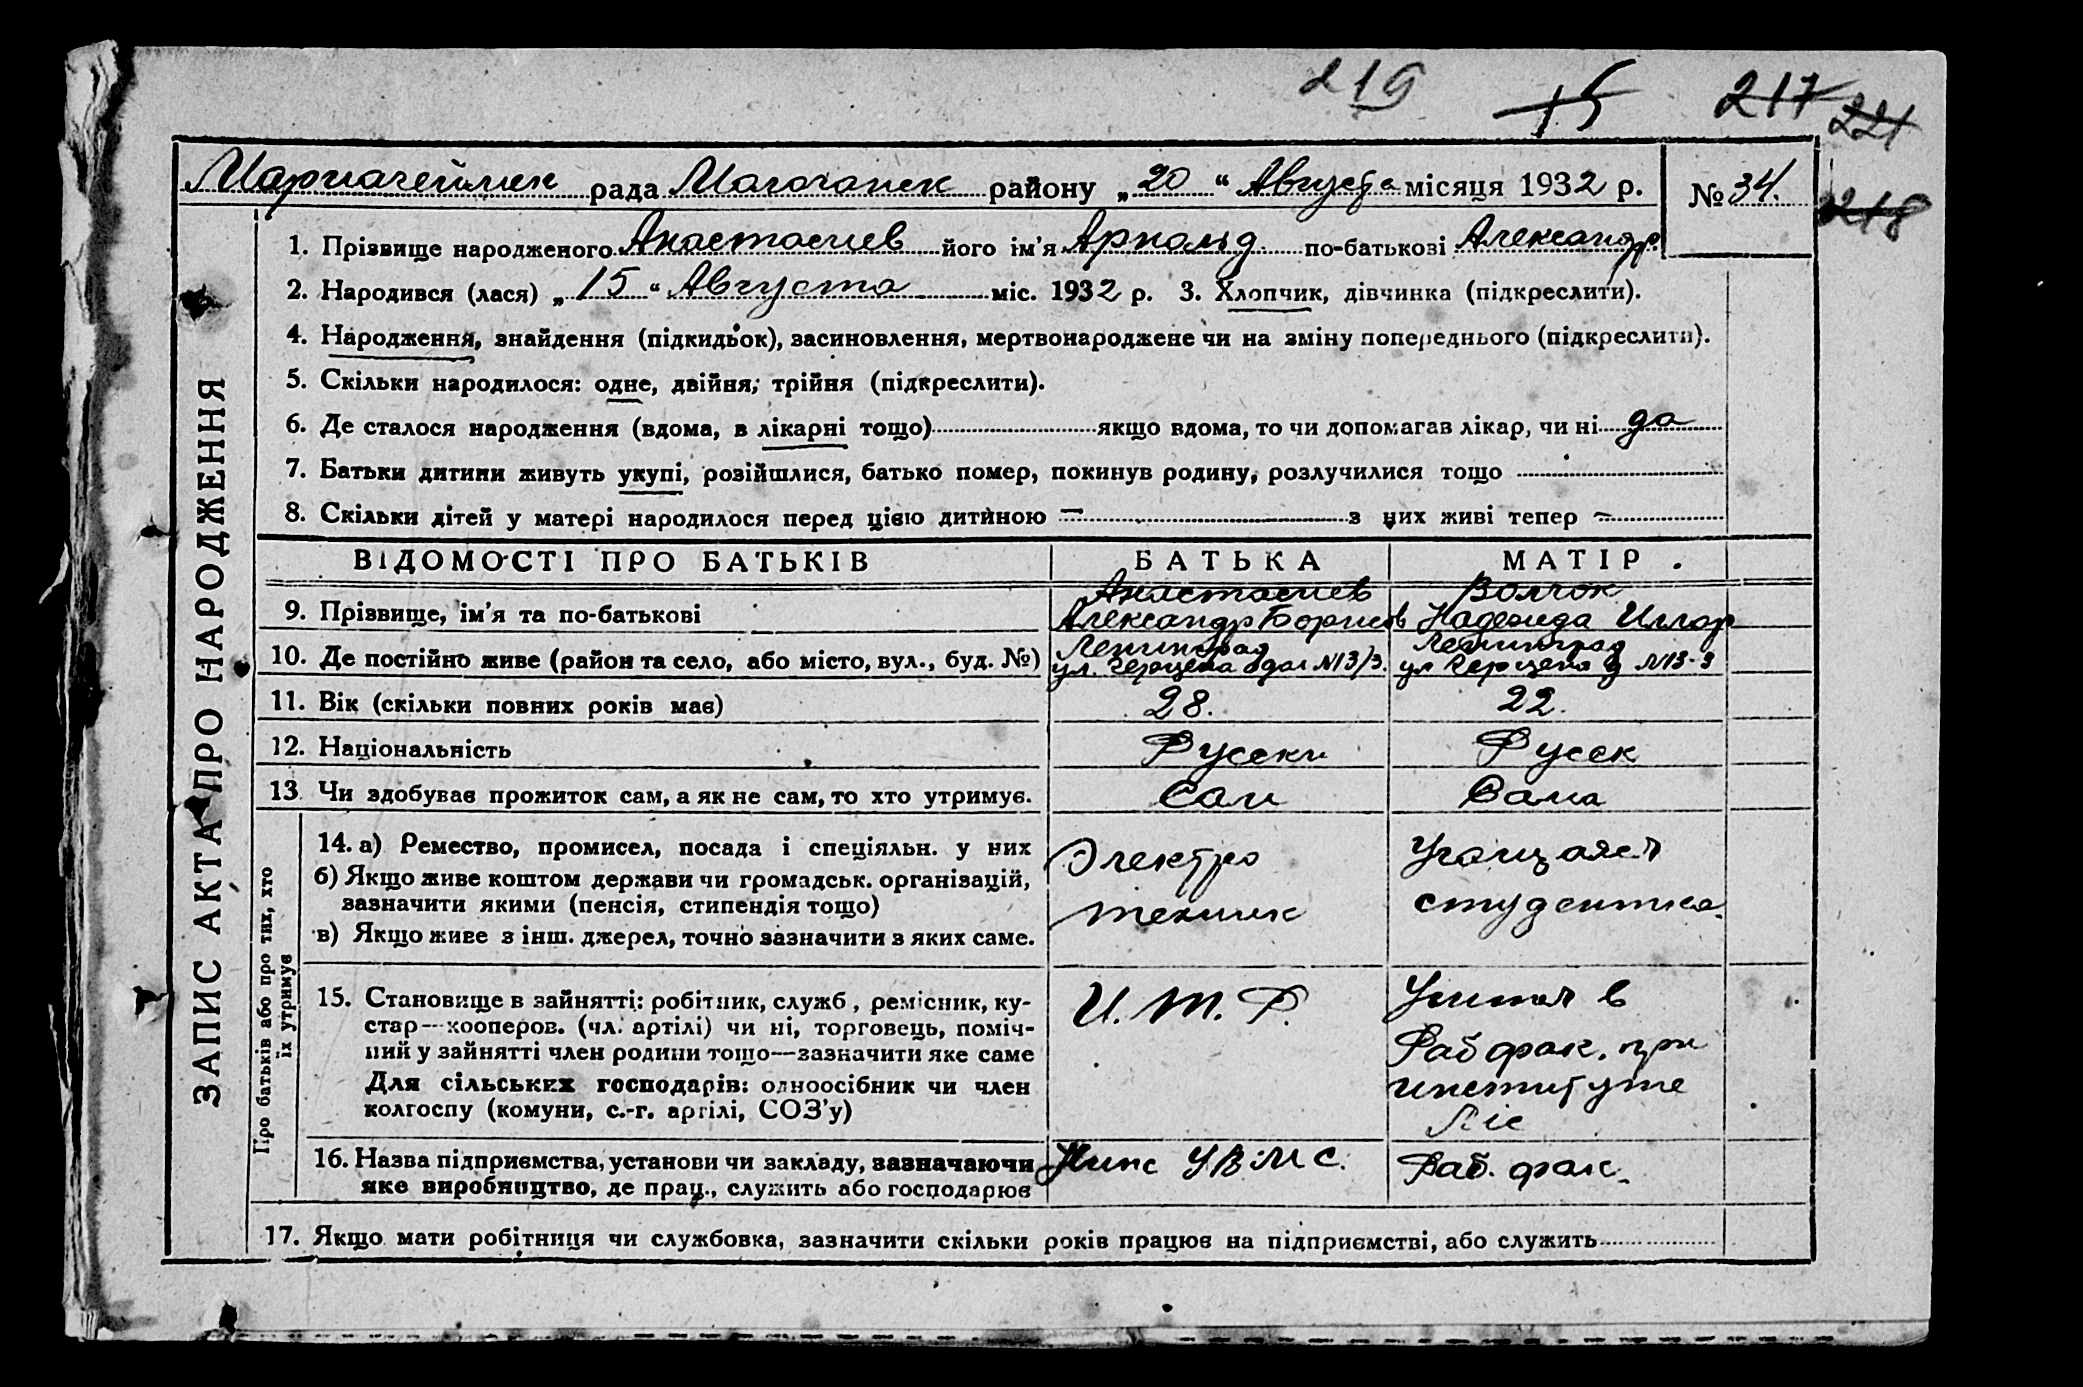 219 15 217 221
218
Мариагеймск рада Молочанск району „20“ Августа місяця 1932 р. № 34.
1. Прізвище народженого Анастасиев його ім'я Арнольд по-батькові Александр
2. Народився (лася) „15“ Августа міс. 1932 р. 3. Хлопчик, дівчинка (підкреслити).
4. Народження, знайдення (підкидьок), засиновлення, мертвонароджене чи на зміну попереднього (підкреслити).
5. Скільки народилося: одне, двійня, трійня (підкреслити).
6. Де сталося народження (вдома, в лікарні тощо) якщо вдома, то чи допомагав лікар, чи ні да
7. Батьки дитини живуть укупі, розійшлися, батько помер, покинув родину, розлучилися тощо
8. Скільки дітей у матері народилося перед цією дитиною — з них живі тепер —
ЗАПИС АКТА ПРО НАРОДЖЕННЯ
ВІДОМОСТІ ПРО БАТЬКІВ БАТЬКА МАТІР
9. Прізвище, ім'я та по-батькові Анастасиев Александр Борисов Волчок Надежда Иллар
10. Де постійно живе (район та село, або місто, вул., буд. №) Ленинград ул. Герцена дом N13/3. Ленинград ул Герцена д N13-3
11. Вік (скільки повних років має) 28. 22.
12. Національність Русски Русск
13 Чи здобував прожиток сам, а як не сам, то хто утримує. Сам Сама
Про батьків або про тих, хто
їх утримує
14. а) Ремество, промисел, посада і спеціяльн. у них
б) Якщо живе коштом держави чи громадськ. організацій,
зазначити якими (пенсія, стипендія тощо)
в) Якщо живе з інш. джерел, точно зазначити з яких саме.
Электро
техник
Учащаяся
студентка
15. Становище в зайнятті: робітник, служб, ремісник, ку-
стар—кооперов. (чл. артілі) чи ні, торговець, поміч-
ний у зайнятті член родини тощо—зазначити яке саме
Для сільських господарів: одноосібник чи член
колгоспу (комуни, с.-г. артілі, СОЗ'у)
И. Т. Р.
Учится в
Рабфак. при
институте
16. Назва підприємства, установи чи закладу, зазначаючи
яке виробництво, де прац., служить або господарює
УВМС. Раб. фак.
17. Якщо мати робітниця чи службовка, зазначити скільки років працює на підприємстві, або служить